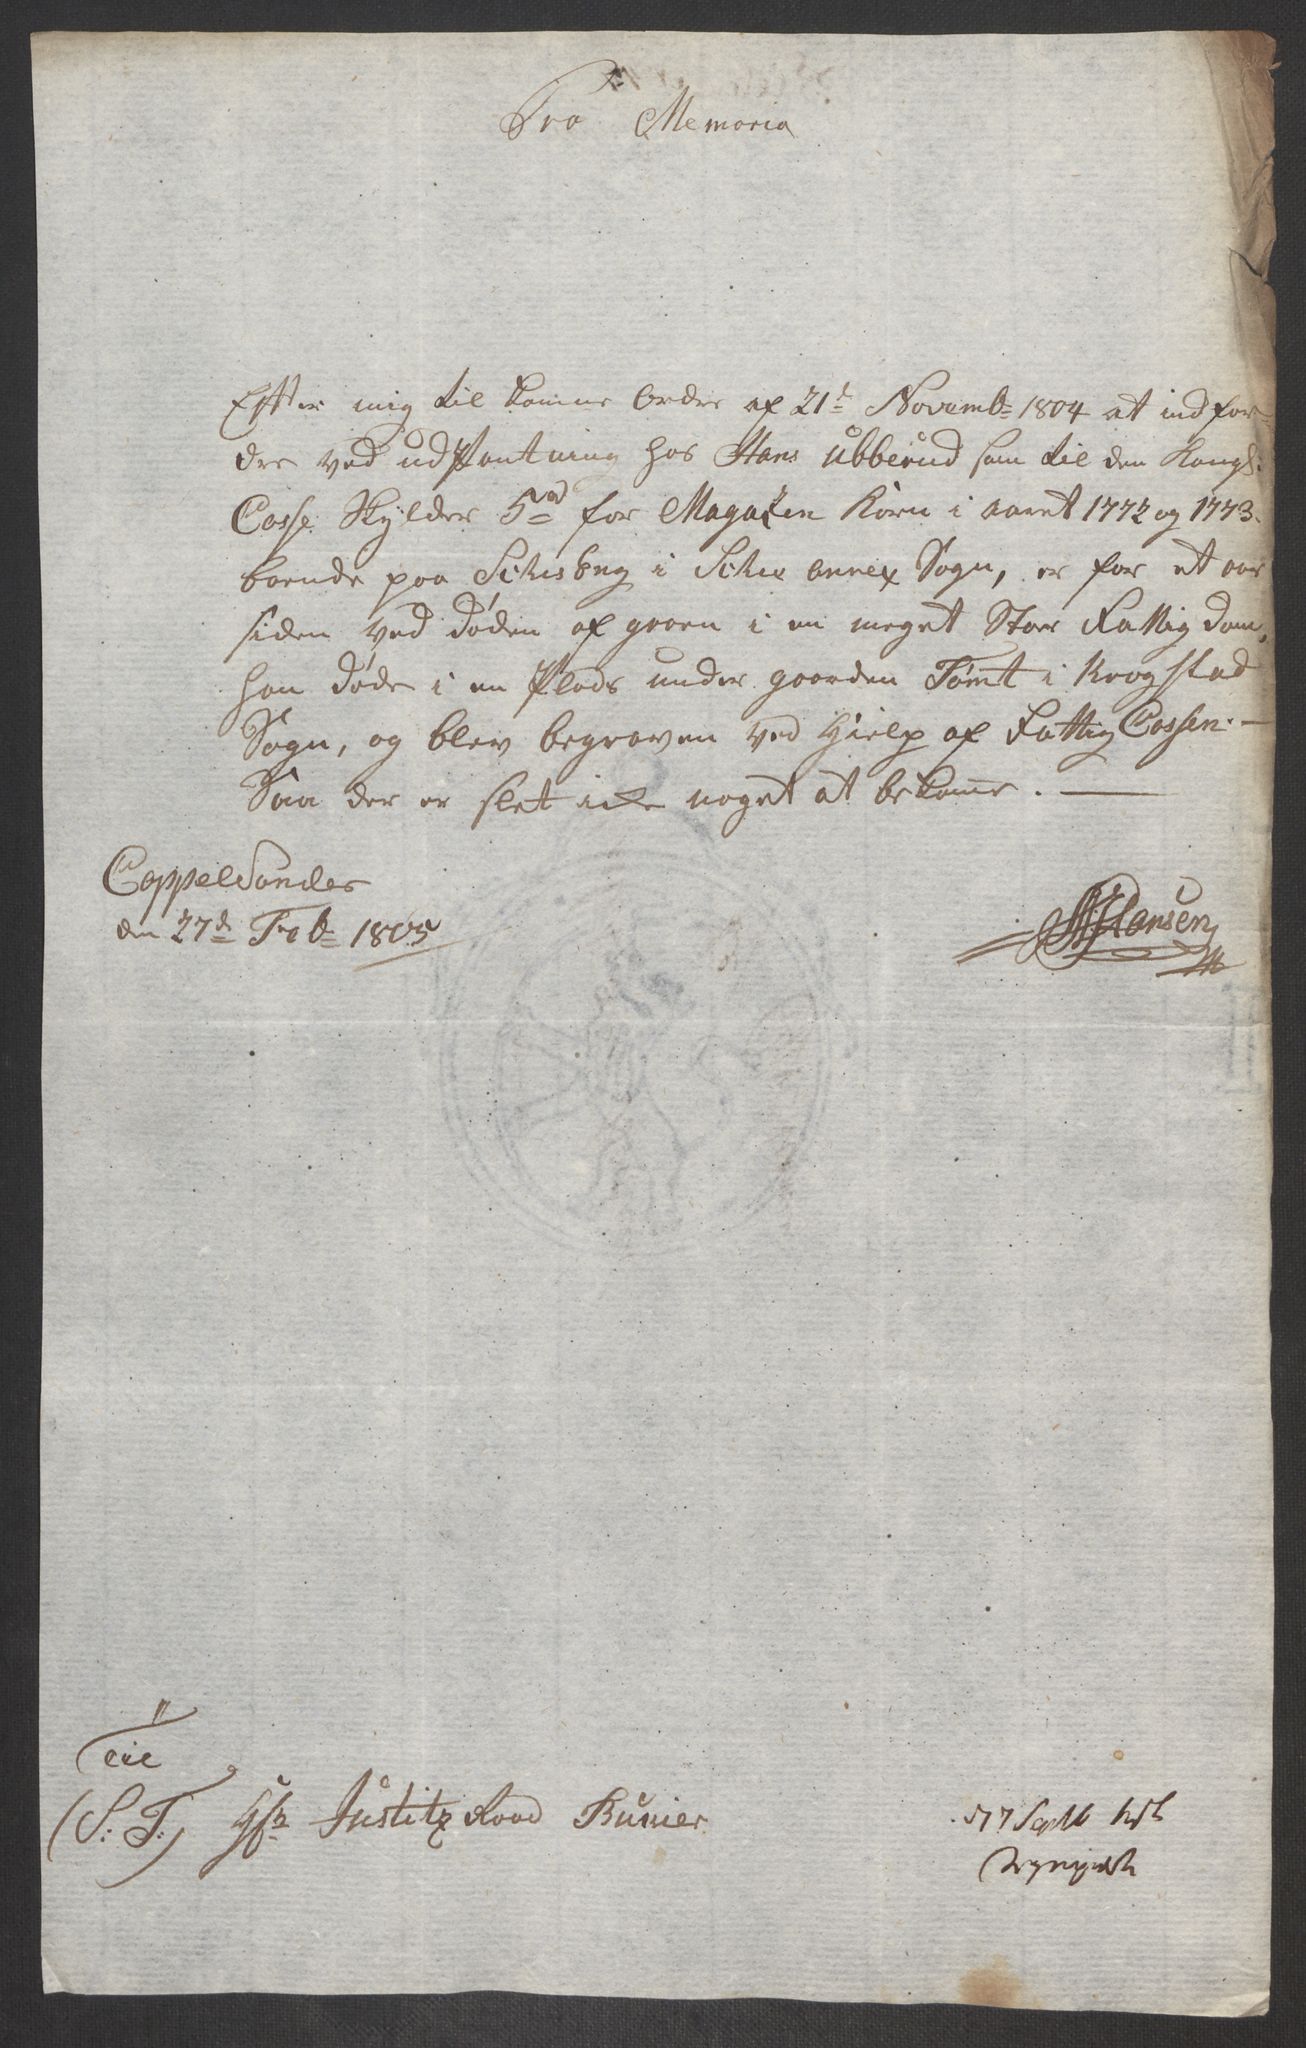 Pro Memoria
Efter mig til komne Ordre af 21de Novembr 1804 at indfor-
dre ved udPantning hos Hans Ubberud som til den Kongl:
Casse Skylder 5rd for Magazin Korn i aaret 1772 og 1773.
boende paa i annex Sogn, er for et aar
siden ved døden af gaaen i en meget Stor Fattigdom,
han døde i en Plads under gaarden Tomt i Krogstad
Sogn, og blev begraven ved Hielp af Fattig Cassen. —
Saa der er slet icke noget at bekomme. —
den 27de Feb 1805
Hansen
Til
(S: T:) Hr Justitz Raad